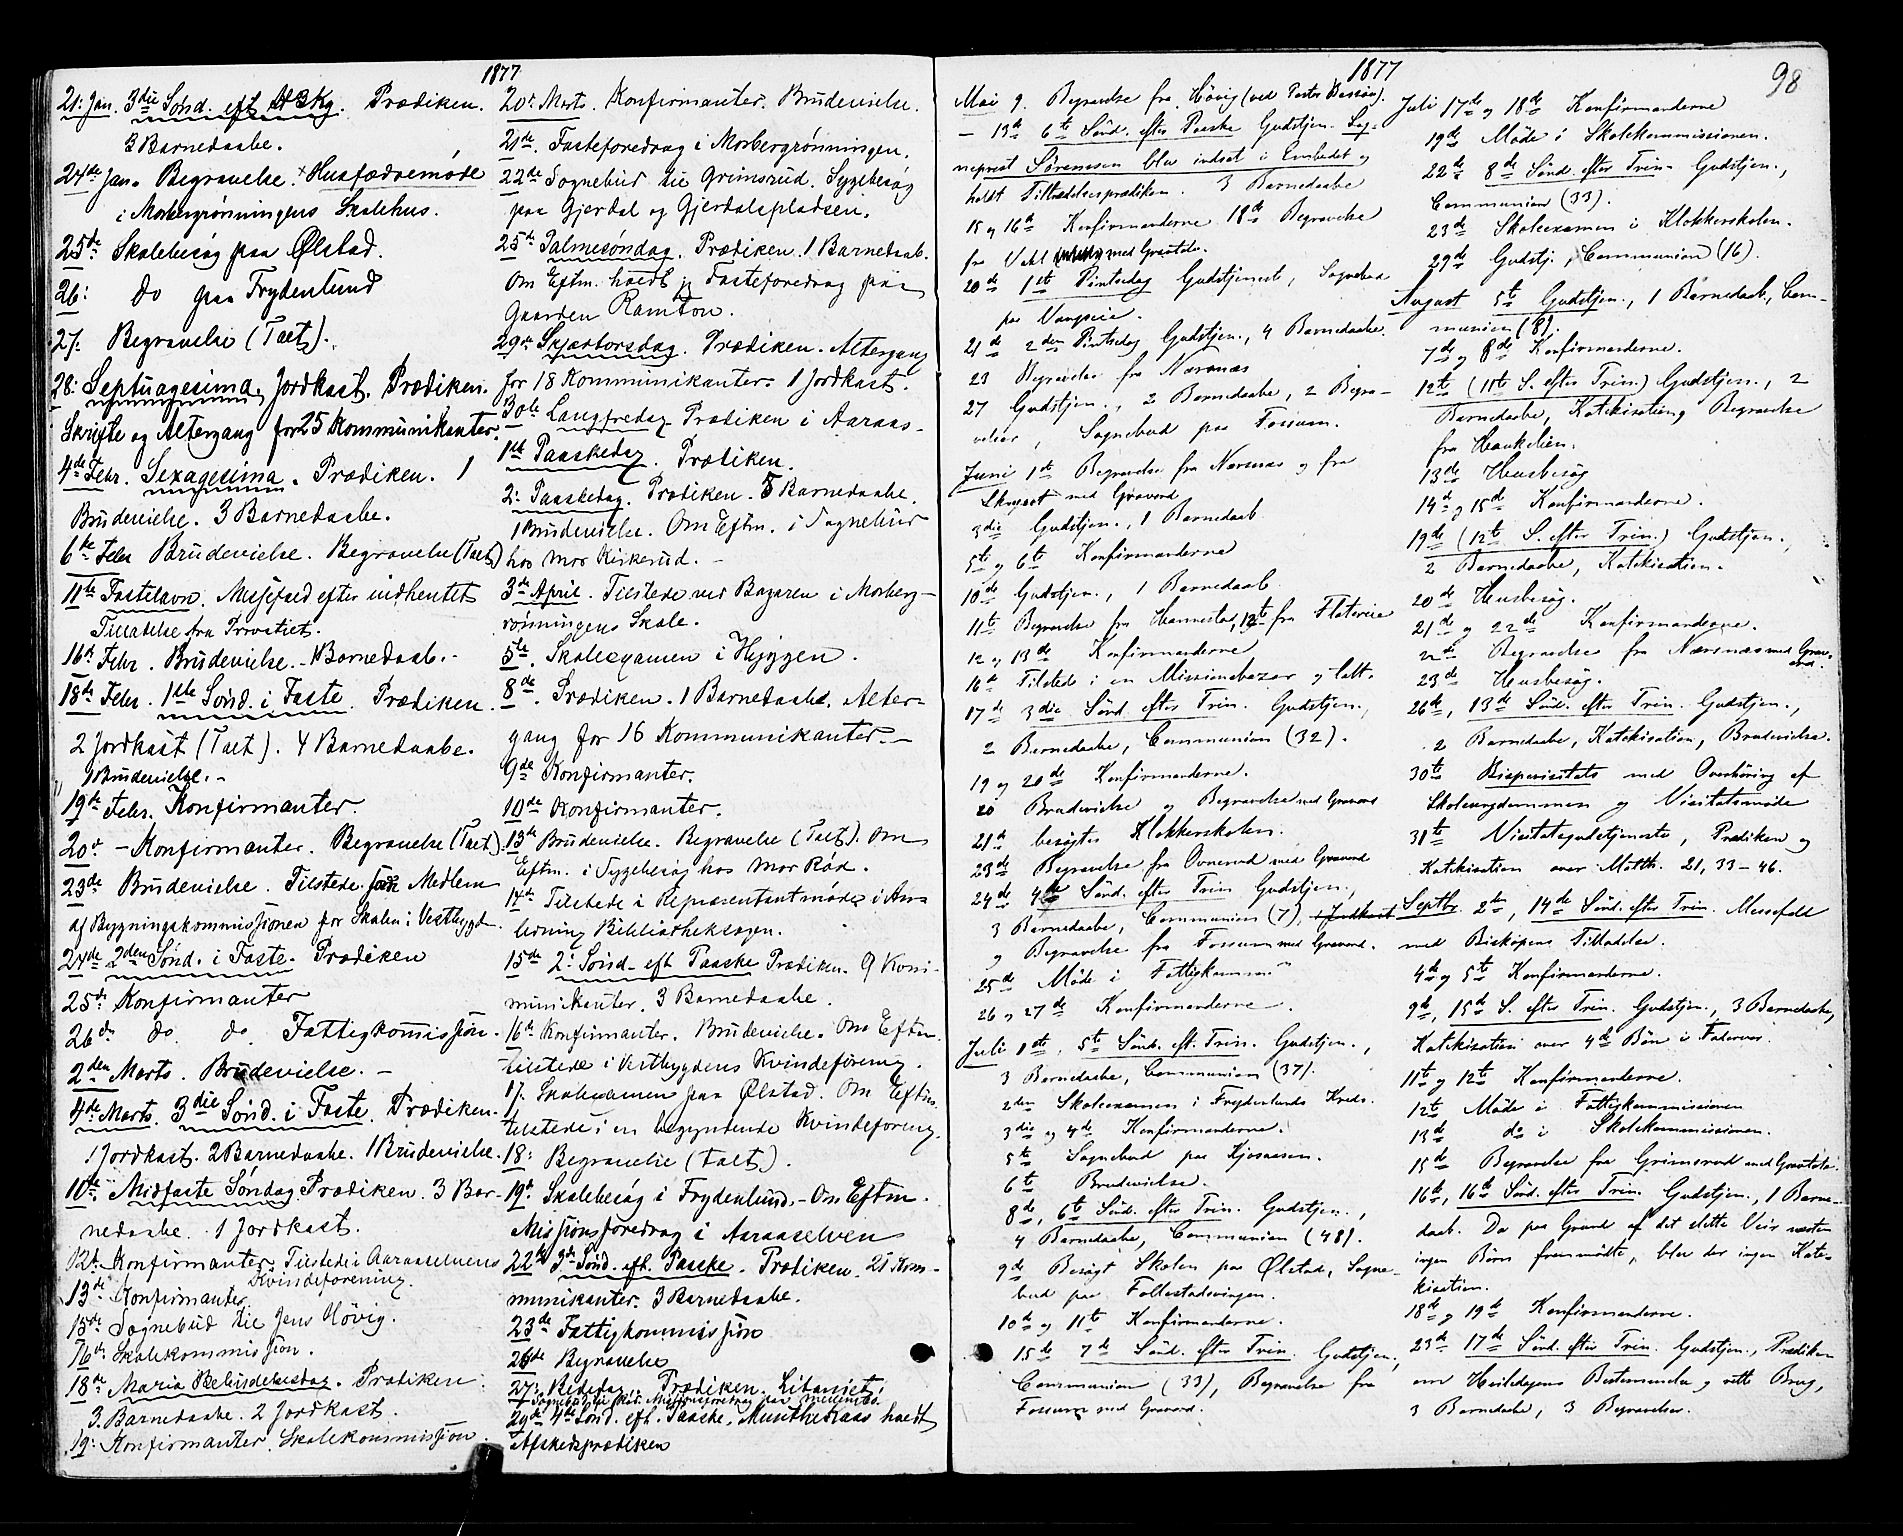 1877
21: Jan. 3die Sönd. eft. H3Kg. Prædiken.
3 Barnedaabe.
24de Jan. Begravelse. + Husfædremøde
i Morbergrønningens Skolehus.
25de Skolebesög paa Ølstad.
26: do paa Frydenlund
27: Begravelse (Talt).
28: Septuagesima. Jordkast. Prædiken.
Skrifte og Altergang for 25 Kommunikanter.
4de Febr. Sexagesima. Prædiken. 1
Brudevielse. 3 Barnedaabe.
6te Febr. Brudevielse. Begravelse (Talt)
11te Fastelavn. Messefald efter indhentet
Tilladelse fra Provstiet.
16d Febr. Brudevielse. - 1 Barnedaab. -
18de Febr. 1ste Sönd. i Faste. Prædiken.
2 Jordkast (Talt). 4 Barnedaabe.
1 Brudevielse. -
19de Febr. Konfirmanter
20d - Konfirmanter. Begravelse (Talt).
23de Brudevielse. Tilstede som Medlem
af Bygningskommissjonen for Skolen i Vestbygd.
24de 2den Sönd. i Faste. Prædiken
25d Konfirmanter
26d do do. Fattigkommissjon.
2den Marts. Brudevielse. -
4de Marts. 3die Sönd. i Faste. Prædiken.
1 Jordkast. 2 Barnedaabe. 1 Brudevielse.
10de Midfaste Söndag Prædiken. 3 Bar-
nedaabe. 1 Jordkast.
12d. Konfirmanter. Tilstede i Aaraaselvens
Kvindeforening.
13de Konfirmanter
15de Sognebud til Jens Hövig.
16d: Skolekommissjon.
18de Maria Bebudelsesdag. Prædiken.
3. Barnedaabe. 2 Jordkast.
19: Konfirmanter. Skolekommissjon.
20d Marts. Konfirmanter. Brudevielse.
21de. Fasteforedrag i Morbergrønningen.
22de Sognebud til Grimsrud. Sygebesög
paa Gjerdal og Gjerdalspladsen.
25de Palmesöndag. Prædiken. 1 Barnedaab.
Om Eftm. holdt jeg Fasteforedrag paa
Gaarden Ramton.
29de Skjærtorsdag. Prædiken. Altergang
for 18 Kommunikanter. 1 Jordkast.
30te Langfredag Prædiken i Aaraas-
1ste Paaskedag. Prædiken.
2: Paaskedag. Prædiken. 5 Barnedaabe.
1 Brudevielse. Om Eftm. i Sognebud
hos Mor Kirkerud. -
3de April. Tilstede ved Bazaren i Morberg-
rönningens Skole.
5te. Skoleexamen i Hyggen.
8de. Prædiken. 1 Barnedaabe. Alter-
gang for 16 Kommunikanter. -
9de Konfirmanter.
10de Konfirmanter.
13de Brudevielse. Begravelse (Talt). Om
Eftm. i Sygebesög hos Mor Röd.
14de Tilstede i Repræsentantmöde i An-
ledning Bibliotheksagen.
15de 2: Sönd. eft. Paaske Prædiken. 9 Kom-
munikanter. 3 Barnedaabe.
16d Konfirmanter. Brudevielse. Om Eftm.
tilstede i Vestbygdens Kvindeforening.
17. Skoleexamen paa Ølstad. Om Eftm.
tilstede i en begyndende Kvindeforening.
18: Begravelse (talt).
19d. Skolebesög i Frydenlund. - Om Eftm.
Missjonsforedrag i Aaraaselven
22de 3de Sönd. eft. Paaske. Prædiken. 25 Kom-
munikanter. 3 Barnedaabe.
23de Fattigkommissjon
26de Begravelse
27: Bededag. Prædiken. Litaniet.
29de 4de Sönd. eft. Paaske. Munthe Kaas holdt
Afskedsprædiken
1877
98
Mai 9. Begravelse fra Hövig (ved Pastor Bassöe).
- 13de 6te Sönd. efter Paaske Gudstjen. Sog-
neprest Sörensen blev indsat i Embedet og
holdt Tiltrædelsesprædiken. 3 Barnedaabe
15 og 16de Konfirmanderne 18de Begravelse
fra Vahl med Gravtale.
20de 1ste Pintsedag Gudstjeneste, Sognebud
paa Vangseie.
21de 2den Pintsedag Gudstjen., 4 Barnedaabe.
23 Begravelse fra Nærsnæs
27 Gudstjen., 2 Barnedaabe, 2 Begra-
velser, Sognebud paa Fossum.
Juni 1ste Begravelse fra Nærsnæs og fra
med Gravord
3die Gudstjen., 1 Barnedaab
5te og 6te Konfirmanderne
10de Gudstjen., 1 Barnedaab
11te Begravelse fra Hannestad, 12te fra
12 og 13de Konfirmanderne
16de Tilstede i en Missionsbazar og talt.
17de 3die Sönd. efter Trin. Gudstjen.,
2 Barnedaabe, Communion (32).
19 og 20de Konfirmanderne.
20 Brudevielse og Begravelse med Gravord
21de besögtes Klokkerskolen.
23de Begravelse fra Ovnerud med Gravord
24de 4de Sönd. efter Trin Gudstjen.,
3 Barnedaabe, Communion (7), 1 Jordkast
og Begravelse fra Fossum med Gravord.
25de Möde i Fattigkomm.
26 og 27de Konfirmanderne.
Juli 1ste, 5te Sönd. eft. Trin. Gudstjen.,
3 Barnedaabe, Communion (37).
2den Skoleexamen i Frydenlunds Kreds.
3die og 4de Konfirmanderne.
5te Sognebud paa Kjosaasen.
6te Brudevielse.
8de, 6te Sönd. efter Trin. Gudstjen.,
4 Barnedaabe, Communion (48).
9de Besögt Skolen paa Ølstad, Sogne-
bud paa Follestadvingen.
10de og 11te Konfirmanderne.
15de 7de Sönd. efter Trin. Gudstjen.,
Communion (33), Begravelse fra
Fossum med Gravord.
Juli 17de og 18de Konfirmanderne
19de Möde i Skolekommissionen.
22de 8de Sönd. efter Trin. Gudstjen.,
Communion (33).
23de Skoleexamen i Klokkerskolen.
29de Gudstj., Communion (16).
August 5te Gudstjen., 1 Barnedaab, Com-
munion (8).
7de og 8de Konfirmanderne.
12te (11te S. efter Trin.) Gudstjen., 2
Barnedaabe, Katekisation, Begravelse
fra Haukelien.
13de Husbesög
14de og 15de Konfirmanderne.
19de (12te S. efter Trin.) Gudstjen.,
2 Barnedaabe, Katekisation.
20de Husbesög.
21de og 22de Konfirmanderne.
22de Begravelse fra Nærsnæs med Grav-
ord.
23de Husbesög.
26de, 13de Sönd. efter Trin. Gudstjen.,
2 Barnedaabe, Katekisation, Brudevielse.
30te Bispevisitats med Overhöring af
Skoleungdommen og Visitatsmöde
31te Visitatsgudstjeneste, Prædiken og
Katekisation over Matth. 21, 33-46.
Septbr. 2den, 14de Sönd. efter Trin. Messefald
med Biskopens Tilladelse.
4de og 5te Konfirmanderne.
9de, 15de S. efter Trin. Gudstjen., 3 Barnedaabe,
Katekisation over 4de Bön i Fadervor.
11te og 12te Konfirmanderne.
12te Möde i Fattigkommissionen
13de do i Skolekommissionen.
15de Begravelse fra Grimsrud med Gravtale.
16te, 16te Sönd. efter Trin. Gudstjen., 1 Barne-
daab. Da paa Grund af det slette Veir næsten
ingen Börn fremmödte, blev der ingen Kate-
kisation.
18de og 19de Konfirmanderne.
23de 17de Sönd. efter Trin. Gudstjen., Prædiken
om Heiledagens Bestemmelse og rette Brug,
3 Barnedaabe, 3 Begravelser.